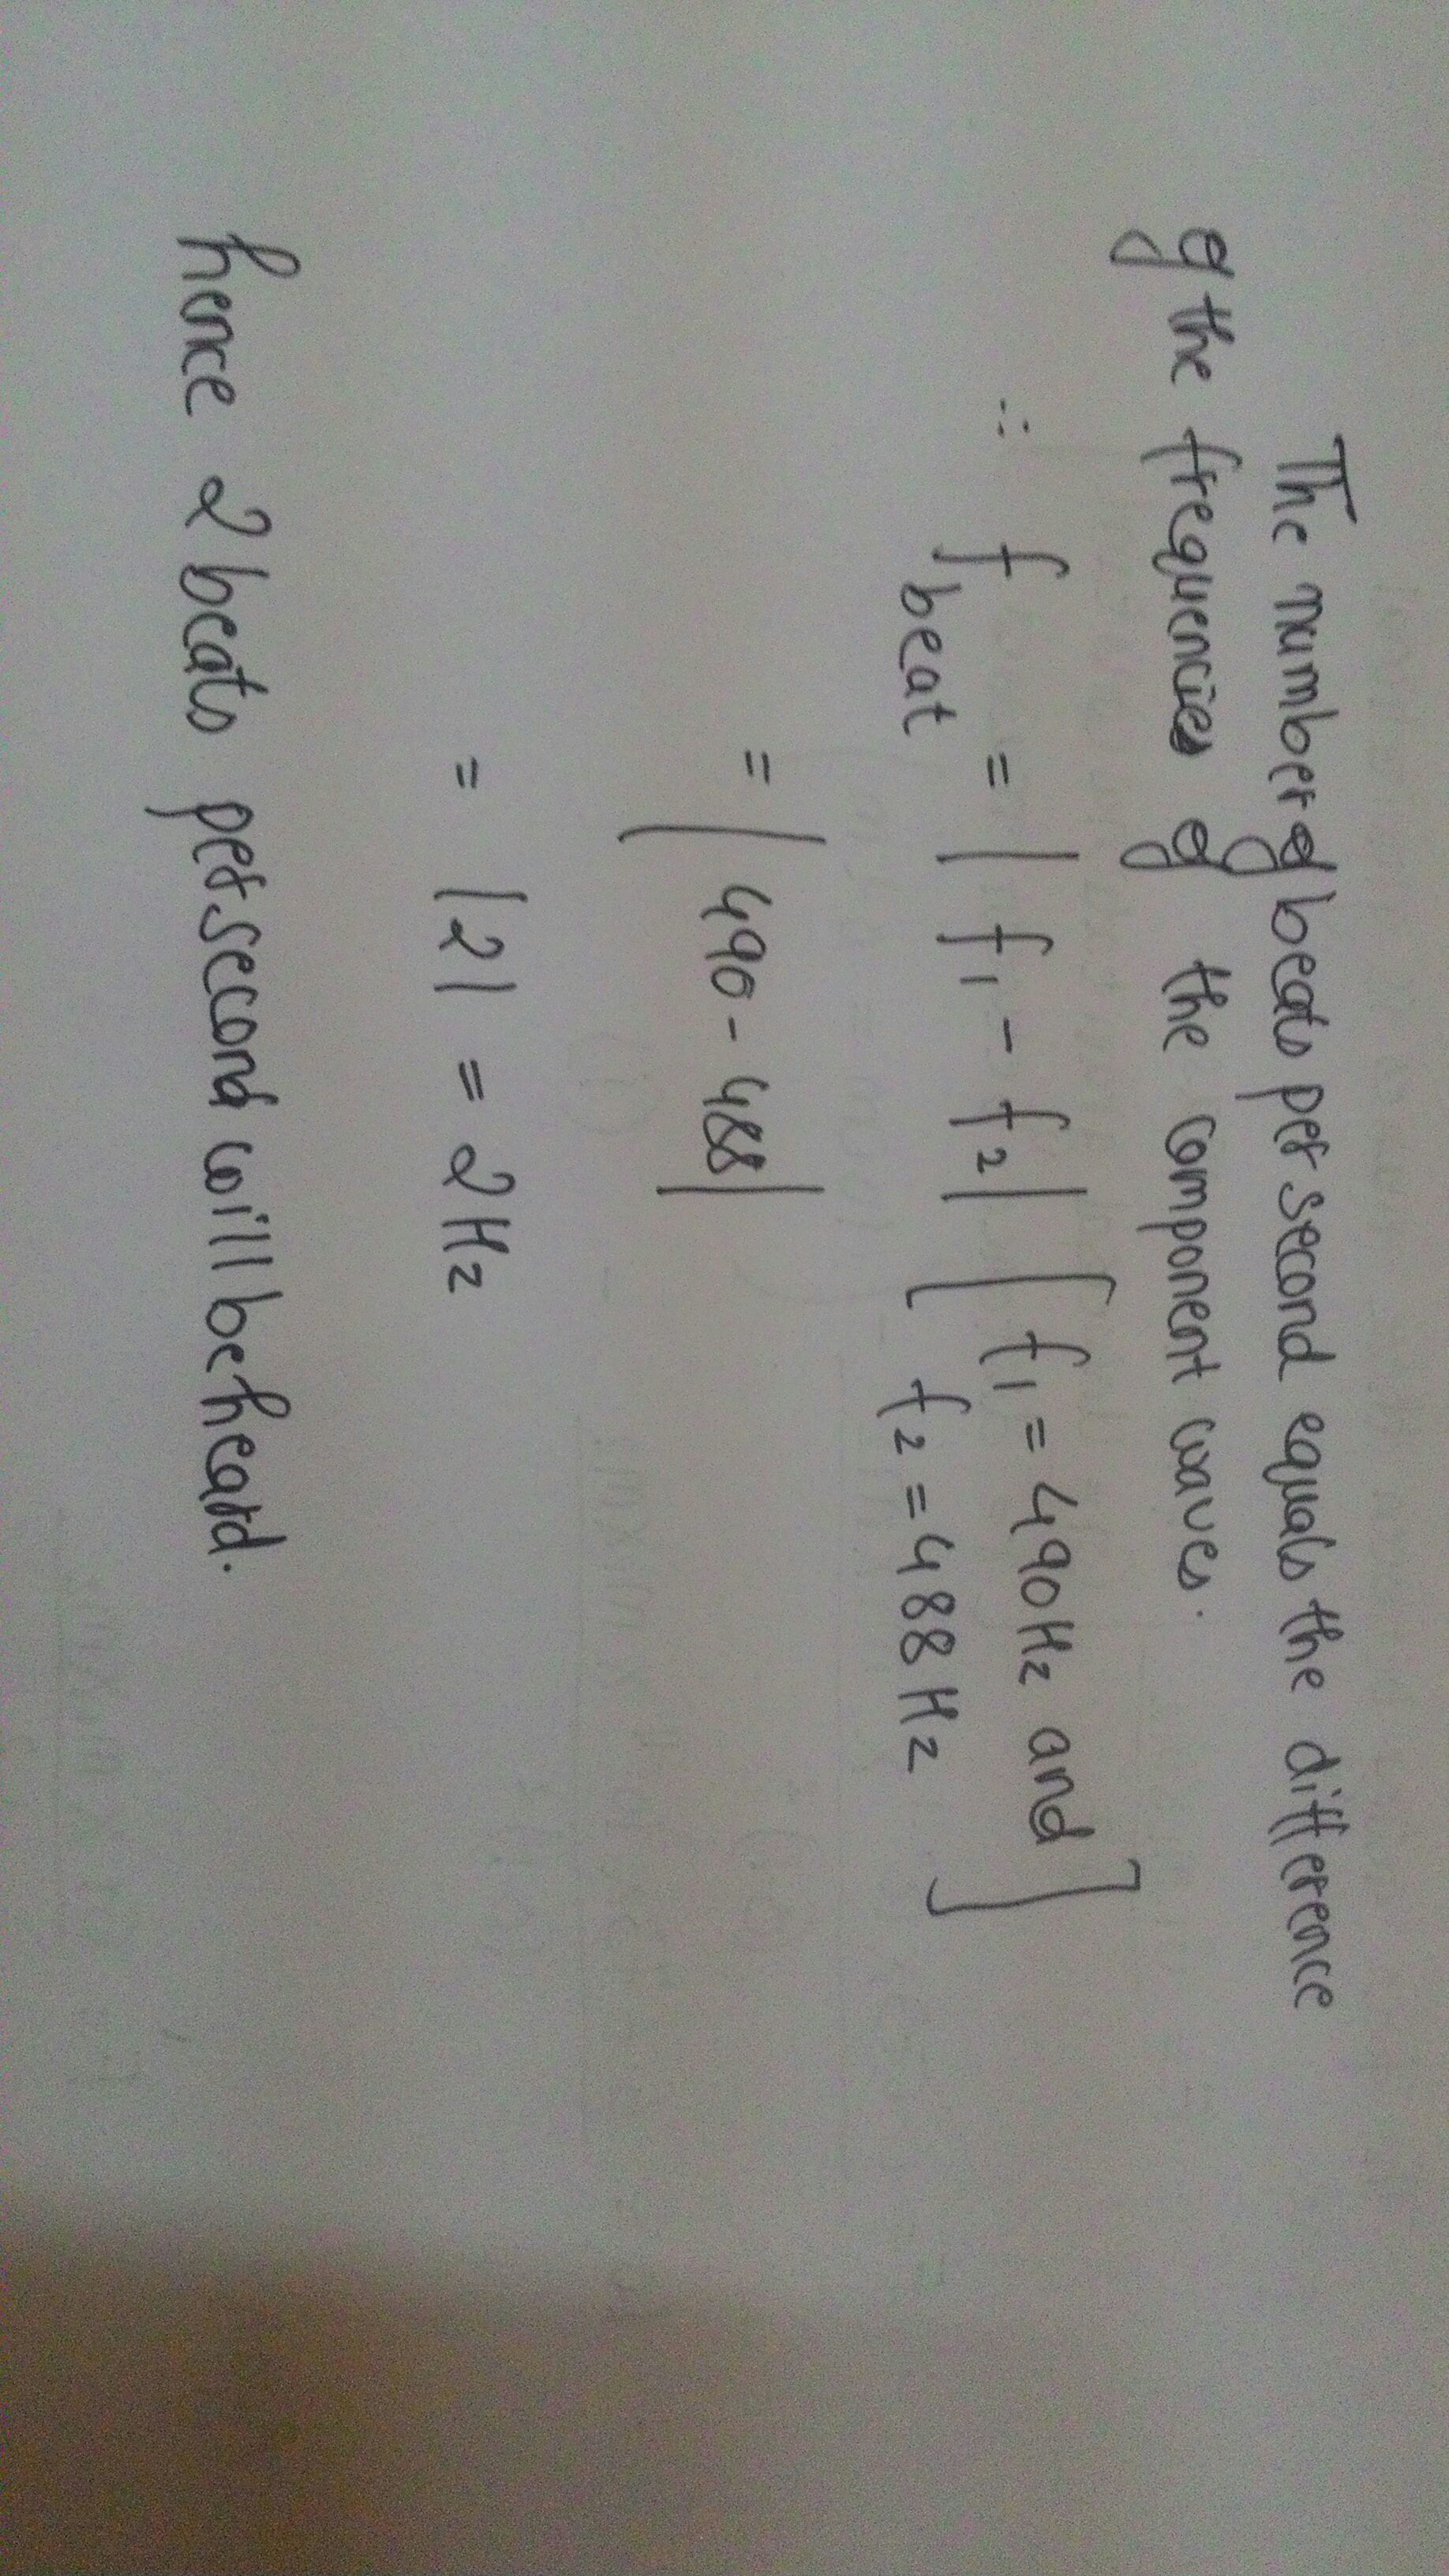 The number of beats per second equals the difference
of the frequencies of the component waves.
∴ f beat = | f₁ - f₂ | [ f₁ = 490Hz and
f₂ = 488Hz ]
= | 490 - 488 |
= |2| = 2Hz
hence 2 beats per second will be heard.